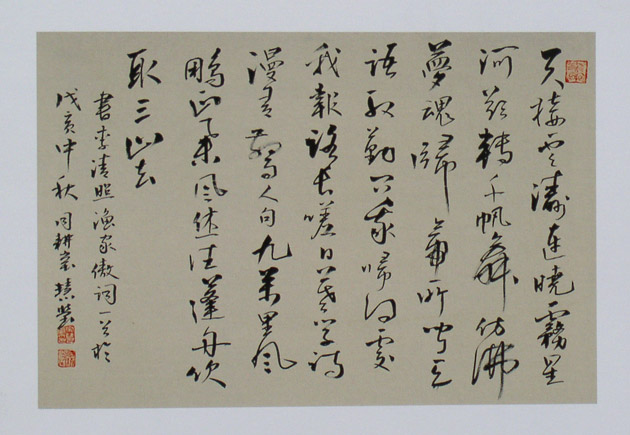 天接雲濤連曉霧星
河欲轉千帆舞仿佛
夢魂歸帝所聞天
語殷勤問我歸何處
我報路長嗟日暮學詩
漫有驚人句九萬里風
鵬正舉風休住蓬舟吹
取三山去
書李清照漁家傲詞一首於
戊亥中秋同耕堂